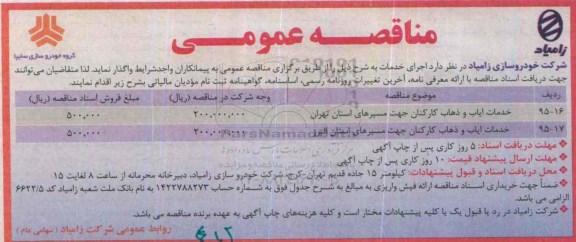 مناقصه عمومی
زامیاد
گروه خودرو سازی سایپا
شرکت خودروسازی زامیاد در نظر دارد اجرای خدمات به شرح ذیل را از طریق برگزاری مناقصه عمومی به پیمانکاران واجدشرایط واگذار نماید. لذا متقاضیان می‌توانند
جهت دریافت اسناد مناقصه با ارائه معرفی نامه، آخرین تغییرات روزنامه رسمی، اساسنامه، گواهینامه ثبت نام مؤدیان مالیاتی بشرح زیر اقدام نمایند.
ردیف موضوع مناقصه وجه شرکت در مناقصه (ریال) مبلغ فروش اسناد مناقصه (ریال)
۹۵-۱۶ خدمات ایاب و ذهاب کارکنان جهت مسیرهای استان تهران ۲۰۰,۰۰۰,۰۰۰ ۵۰۰,۰۰۰
۹۵-۱۷ خدمات ایاب و ذهاب کارکنان جهت مسیرهای استان البرز ۲۰۰,۰۰۰,۰۰۰ ۵۰۰,۰۰۰
مهلت دریافت اسناد: ۵ روز کاری پس از چاپ آگهی
مهلت ارسال پیشنهاد قیمت: ۱۰ روز کاری پس از چاپ آگهی
محل دریافت اسناد و قبول پیشنهادات: کیلومتر ۱۵ جاده قدیم تهران-کرج، شرکت خودرو سازی زامیاد، دبیرخانه محرمانه از ساعت ۸ لغایت ۱۵
ضمناً جهت خریداری اسناد مناقصه ارائه فیش واریزی به مبالغ به شرح جدول فوق به شماره حساب ۱۴۲۲۷۸۸۲۷۳ به نام بانک ملت شعبه زامیاد کد ۶۶۲۲/۵
الزامی می باشد.
شرکت زامیاد در رد یا قبول یک یا کلیه پیشنهادات مختار است و کلیه هزینه‌های چاپ آگهی به عهده برنده مناقصه می باشد.
روابط عمومی شرکت زامیاد ( سهامی عام )